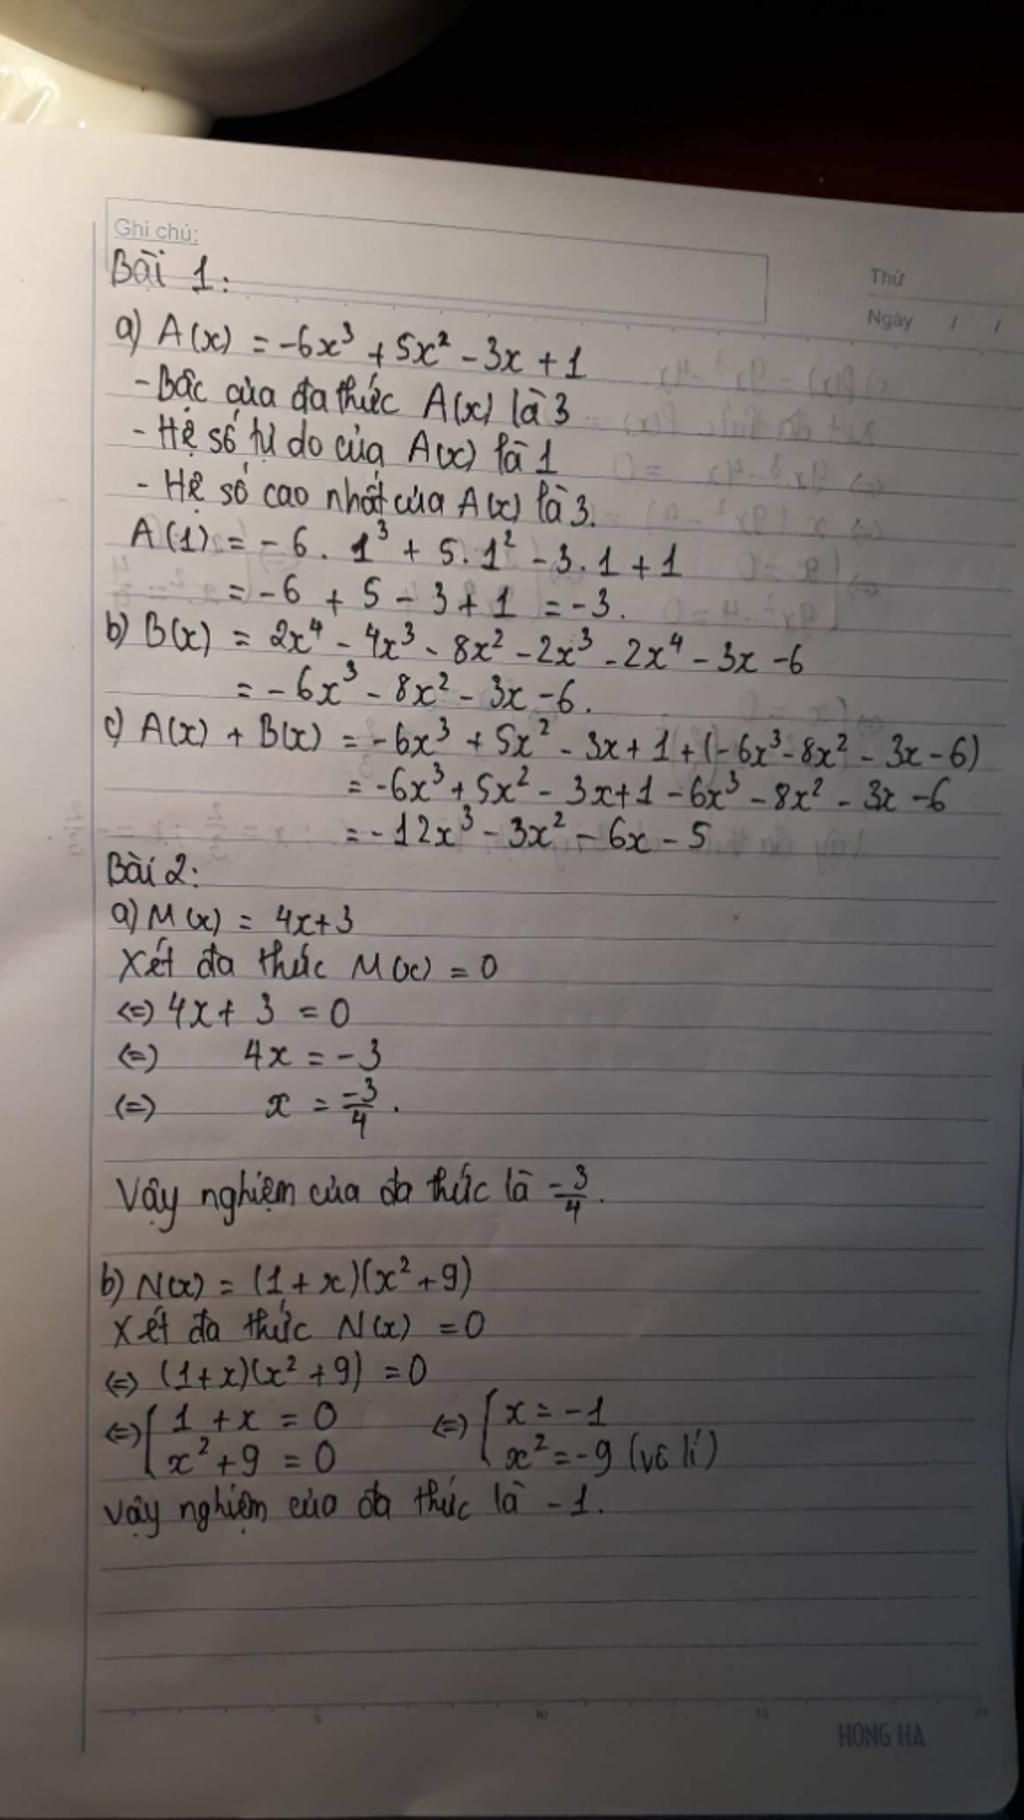 Ghi chú:
Thứ
Ngày / /
Bài 1:
a) A(x) = -6x³ + 5x² - 3x + 1
- Bậc của đa thức A(x) là 3
- Hệ số tự do của A(x) là 1
- Hệ số cao nhất của A(x) là 3.
A(1) = -6 . 1³ + 5.1² - 3.1 + 1
= -6 + 5 - 3 + 1 = -3.
b) B(x) = 2x⁴ - 4x³ - 8x² - 2x³ - 2x⁴ - 3x - 6
= -6x³ - 8x² - 3x - 6.
c) A(x) + B(x) = -6x³ + 5x² - 3x + 1 + (-6x³ - 8x² - 3x - 6)
= -6x³ + 5x² - 3x + 1 - 6x³ - 8x² - 3x - 6
= -12x³ - 3x² - 6x - 5
Bài 2:
a) M(x) = 4x + 3
Xét đa thức M(x) = 0
(=) 4x + 3 = 0
(=) 4x = -3
(=) x = -3/4.
Vậy nghiệm của đa thức là -3/4.
b) N(x) = (1 + x)(x² + 9)
Xét đa thức N(x) = 0
(=) (1 + x)(x² + 9) = 0
(=) [ 1 + x = 0 (=) [ x = -1
x² + 9 = 0 x² = -9 (vô lí)
Vậy nghiệm của đa thức là -1.
5 10 15 20
HONG HA